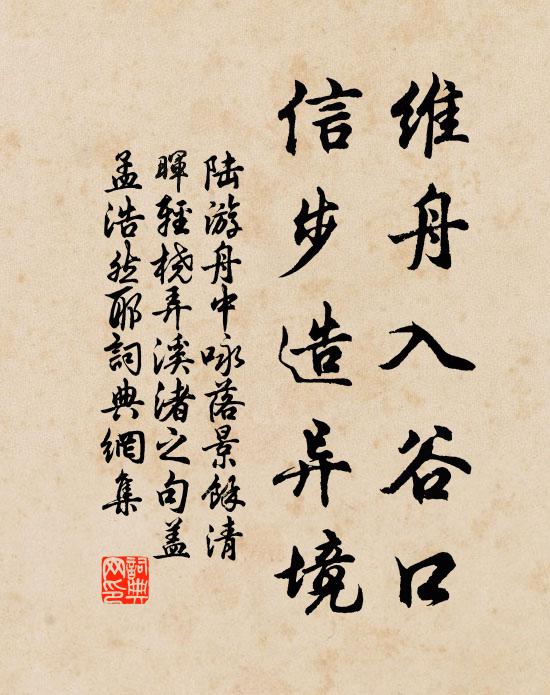 維舟入谷口
信步造异境
陆游舟中咏落景餘清
暉輕桡弄溪渚之句盖
孟浩然耶詞典網集
詞典网印